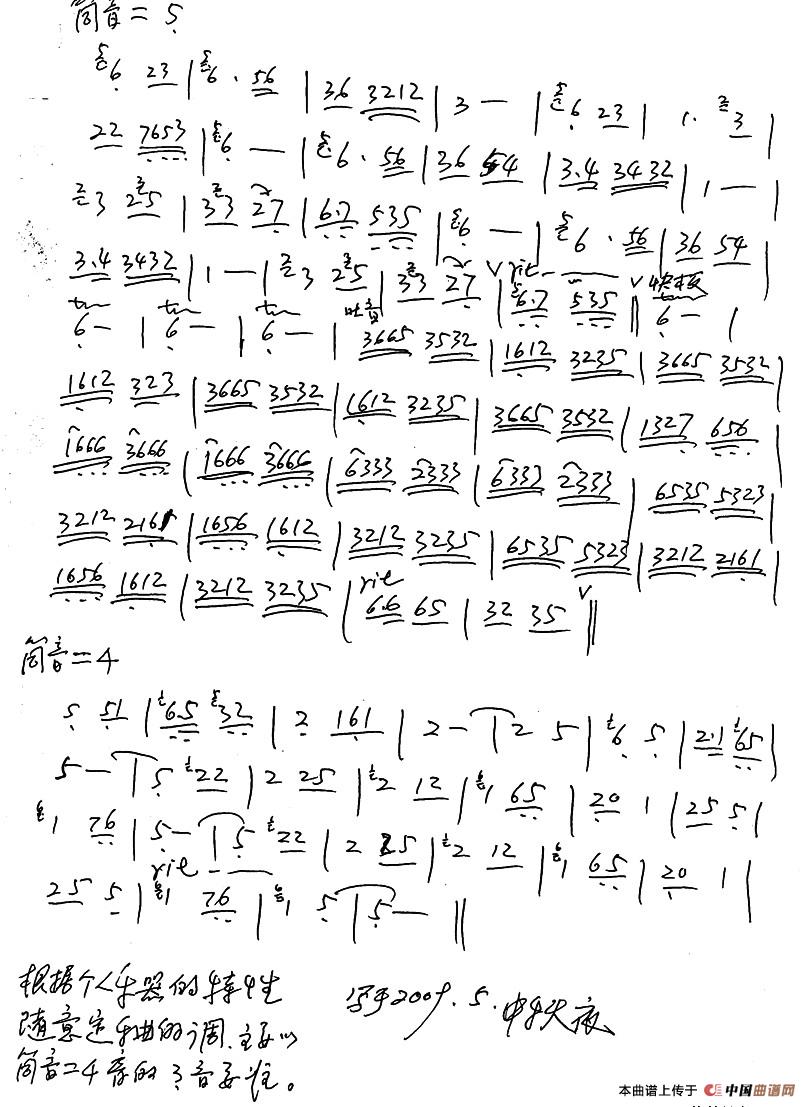 筒音=5
5 6 23 | 5 6 · 56 | 36 3212 | 3 — | 5 6 23 | 1 · 2 3 |
22 7653 | 5 6 — | 5 6 · 56 | 36 54 | 3.4 3432 | 1 — |
2 3 25 | 33 27 | 6.7 535 | 5 6 — | 5 6 · 56 | 36 54 |
3.4 3432 | 1 — | 2 3 25 | 33 27 | 6.7 535 || 6 — |
V rit V 快板
tr tr tr 吐音 tr
6 — | 6 — | 6 — | 3665 3532 | 1612 3235 | 3665 3532 |
1612 323 | 3665 3532 | 1612 3235 | 3665 3532 | 1327 656 |
1666 3666 | 1666 3666 | 6333 2333 | 6333 2333 | 6535 5323 |
3212 2161 | 1656 1612 | 3212 3235 | 6535 5323 | 3212 2161 |
1656 1612 | 3212 3235 | rit 6.6 65 | 32 35 V ||
筒音=4
5 51 | 65 32 | 2 161 | 2 — | 2 5 | 6 5 | 2.1 65 |
5 — | 5 22 | 2 25 | 2 12 | 1 65 | 20 1 | 25 5 |
1 76 | 5 — | 5 22 | 2 25 | 2 12 | 1 65 | 20 1 |
rit
25 5 | 1 76 | 1 5 | 5 — ||
根据个人乐器的特性
随意定乐曲的调.主要以
筒音=4 音的 音要准。
写于2009.5.中午
本曲谱上传于 中国曲谱网